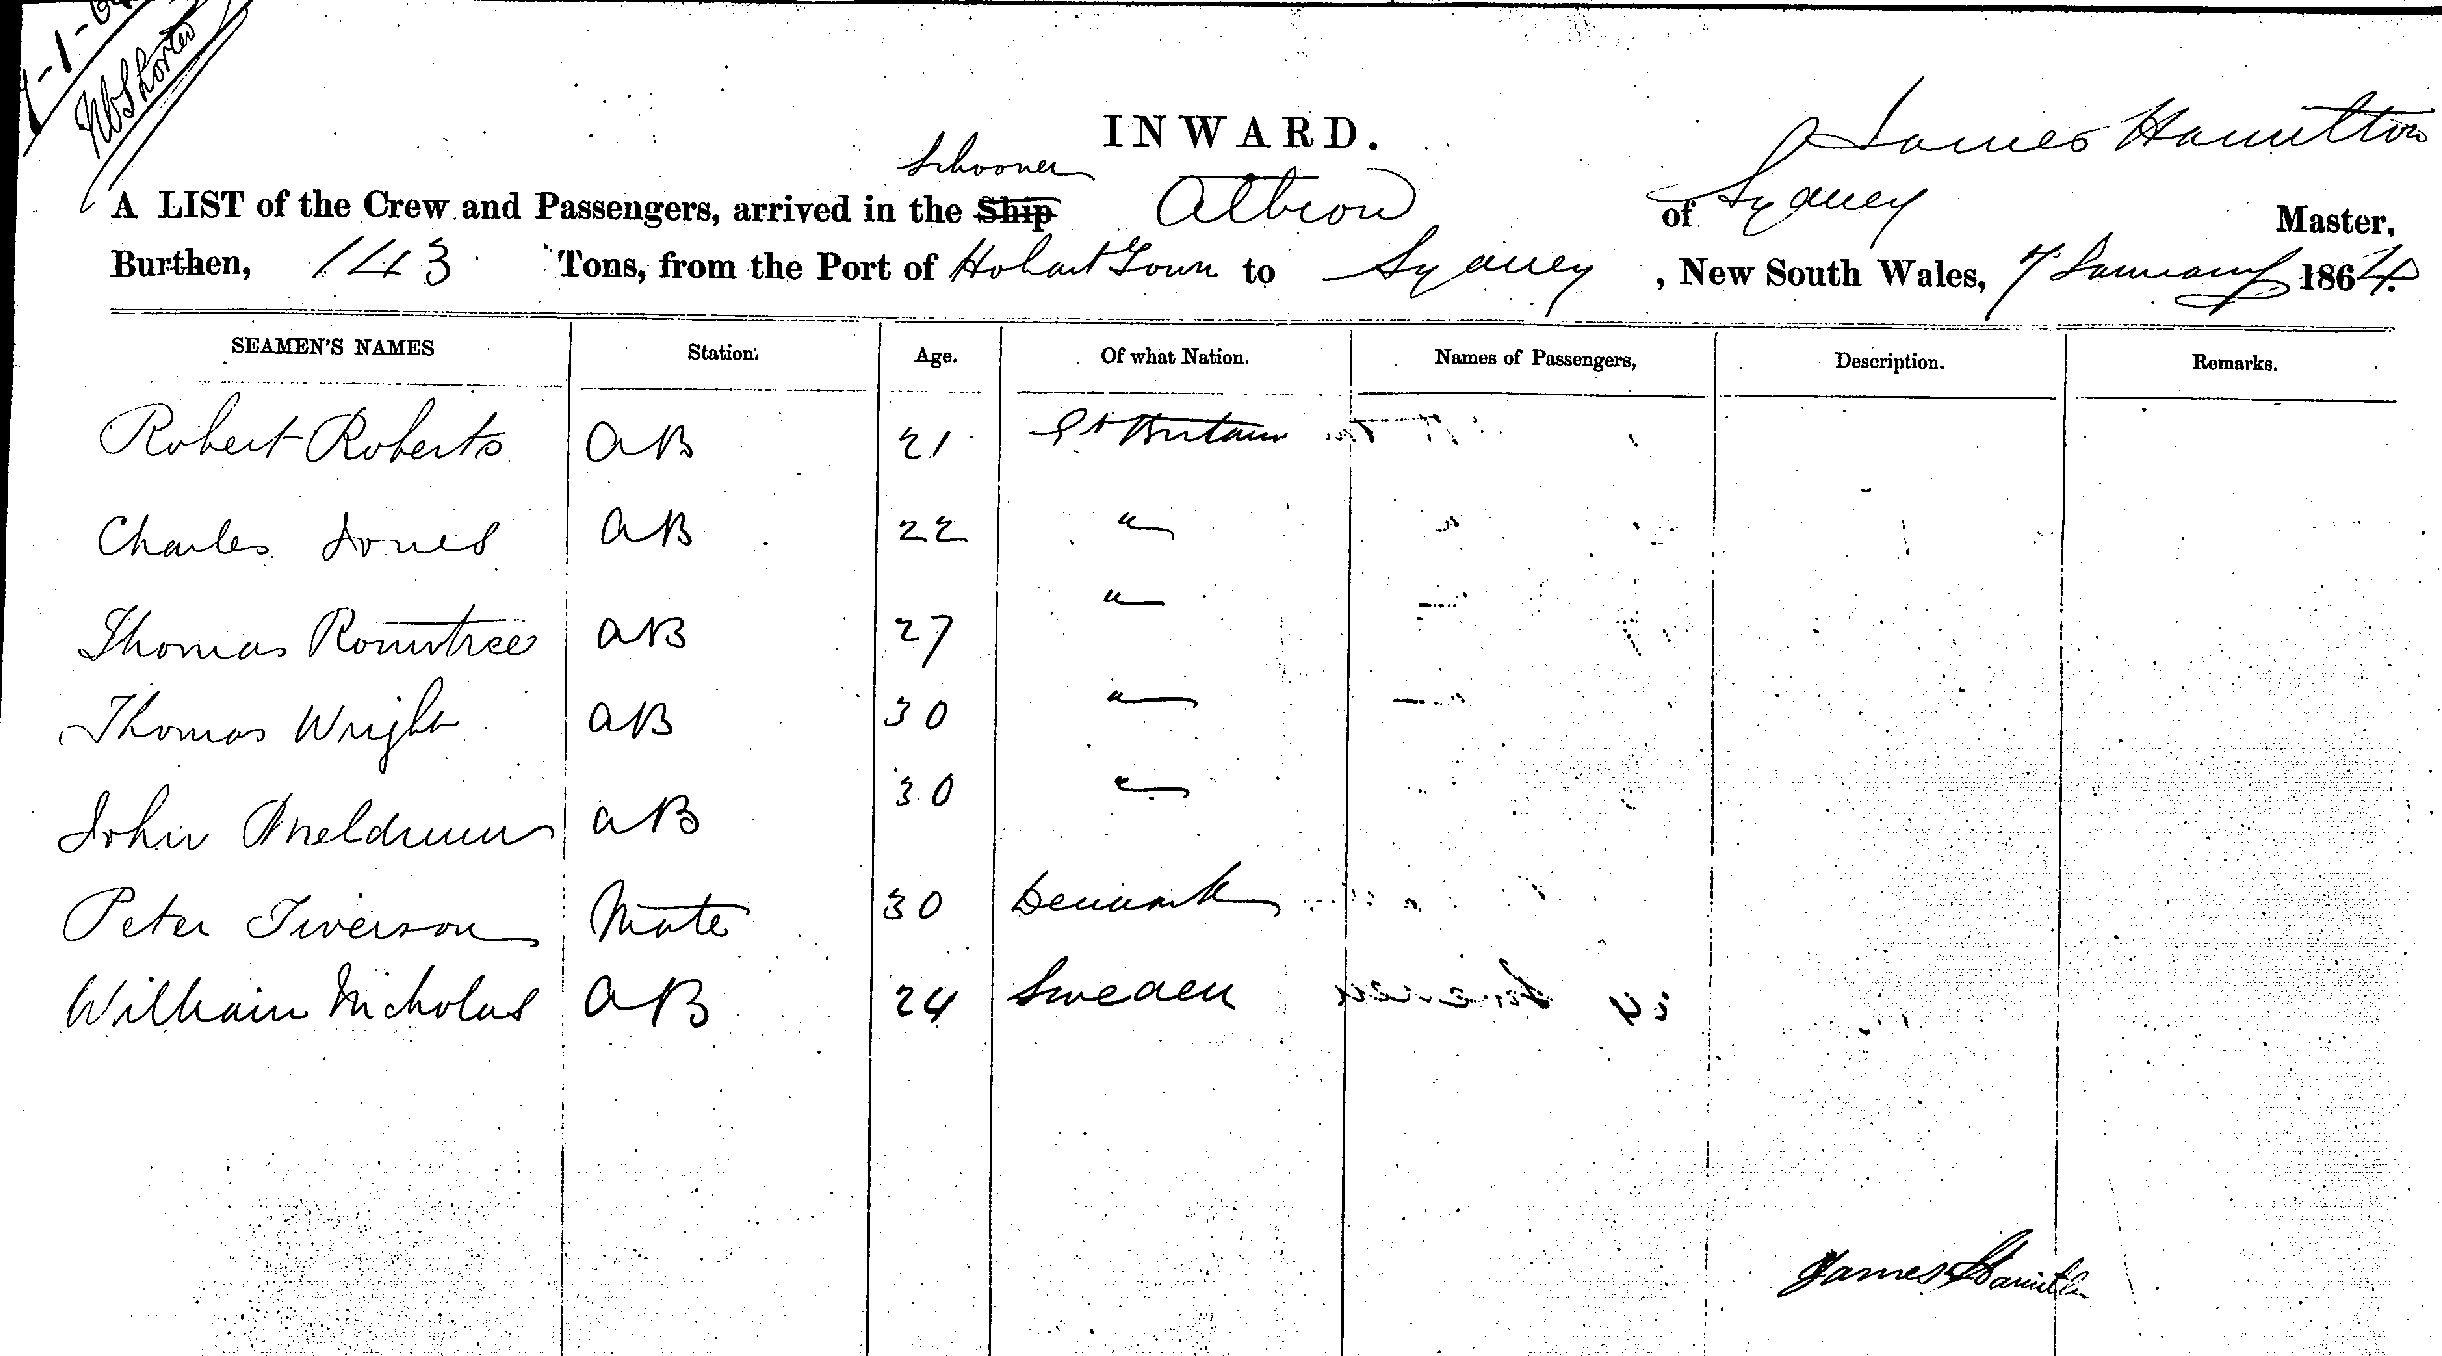 INWARD.
Schooner
James Hamilton
A LIST of the Crew and Passengers, arrived in the Ship Albion of Sydney Master,
Burthen, 143 Tons, from the Port of Hobart Town to Sydney, New South Wales, 7 January 1864.
SEAMEN'S NAMES Station. Age. Of what Nation. Names of Passengers, Description. Remarks.
Robert Roberts AB 21 Gt Britain
Charles Jones AB 22 "
Thomas Rowntree AB 27 "
Thomas Wright AB 30 "
John Meldrum AB 30 "
Peter Iverson Mate 30 Denmark
William Nicholas AB 24 Sweden
James Hamilton